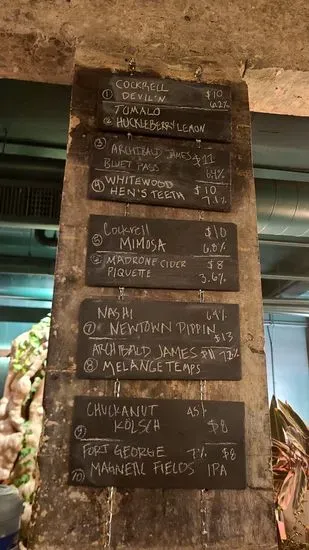 COCKRELL $10
① DEVIL'N 6.2%
TUMALO
② HUCKLEBERRY LEMON
③ ARCHIBALD JAMES $11
BLUET PASS 6.4%
④ WHITEWOOD $10
HEN'S TEETH 7.1%
COCKRELL $10
⑤ MIMOSA 6.8%
MADRONE CIDER $8
PIQUETTE 3.6%
NASHI 6.4%
⑦ NEWTOWN PIPPIN $13
ARCHIBALD JAMES $11 7.2%
⑧ MELANGE TEMPS
CHUCKANUT 4.5%
⑨ KÖLSCH $8
FORT GEORGE 7% $8
⑩ MAGNETIC FIELDS IPA